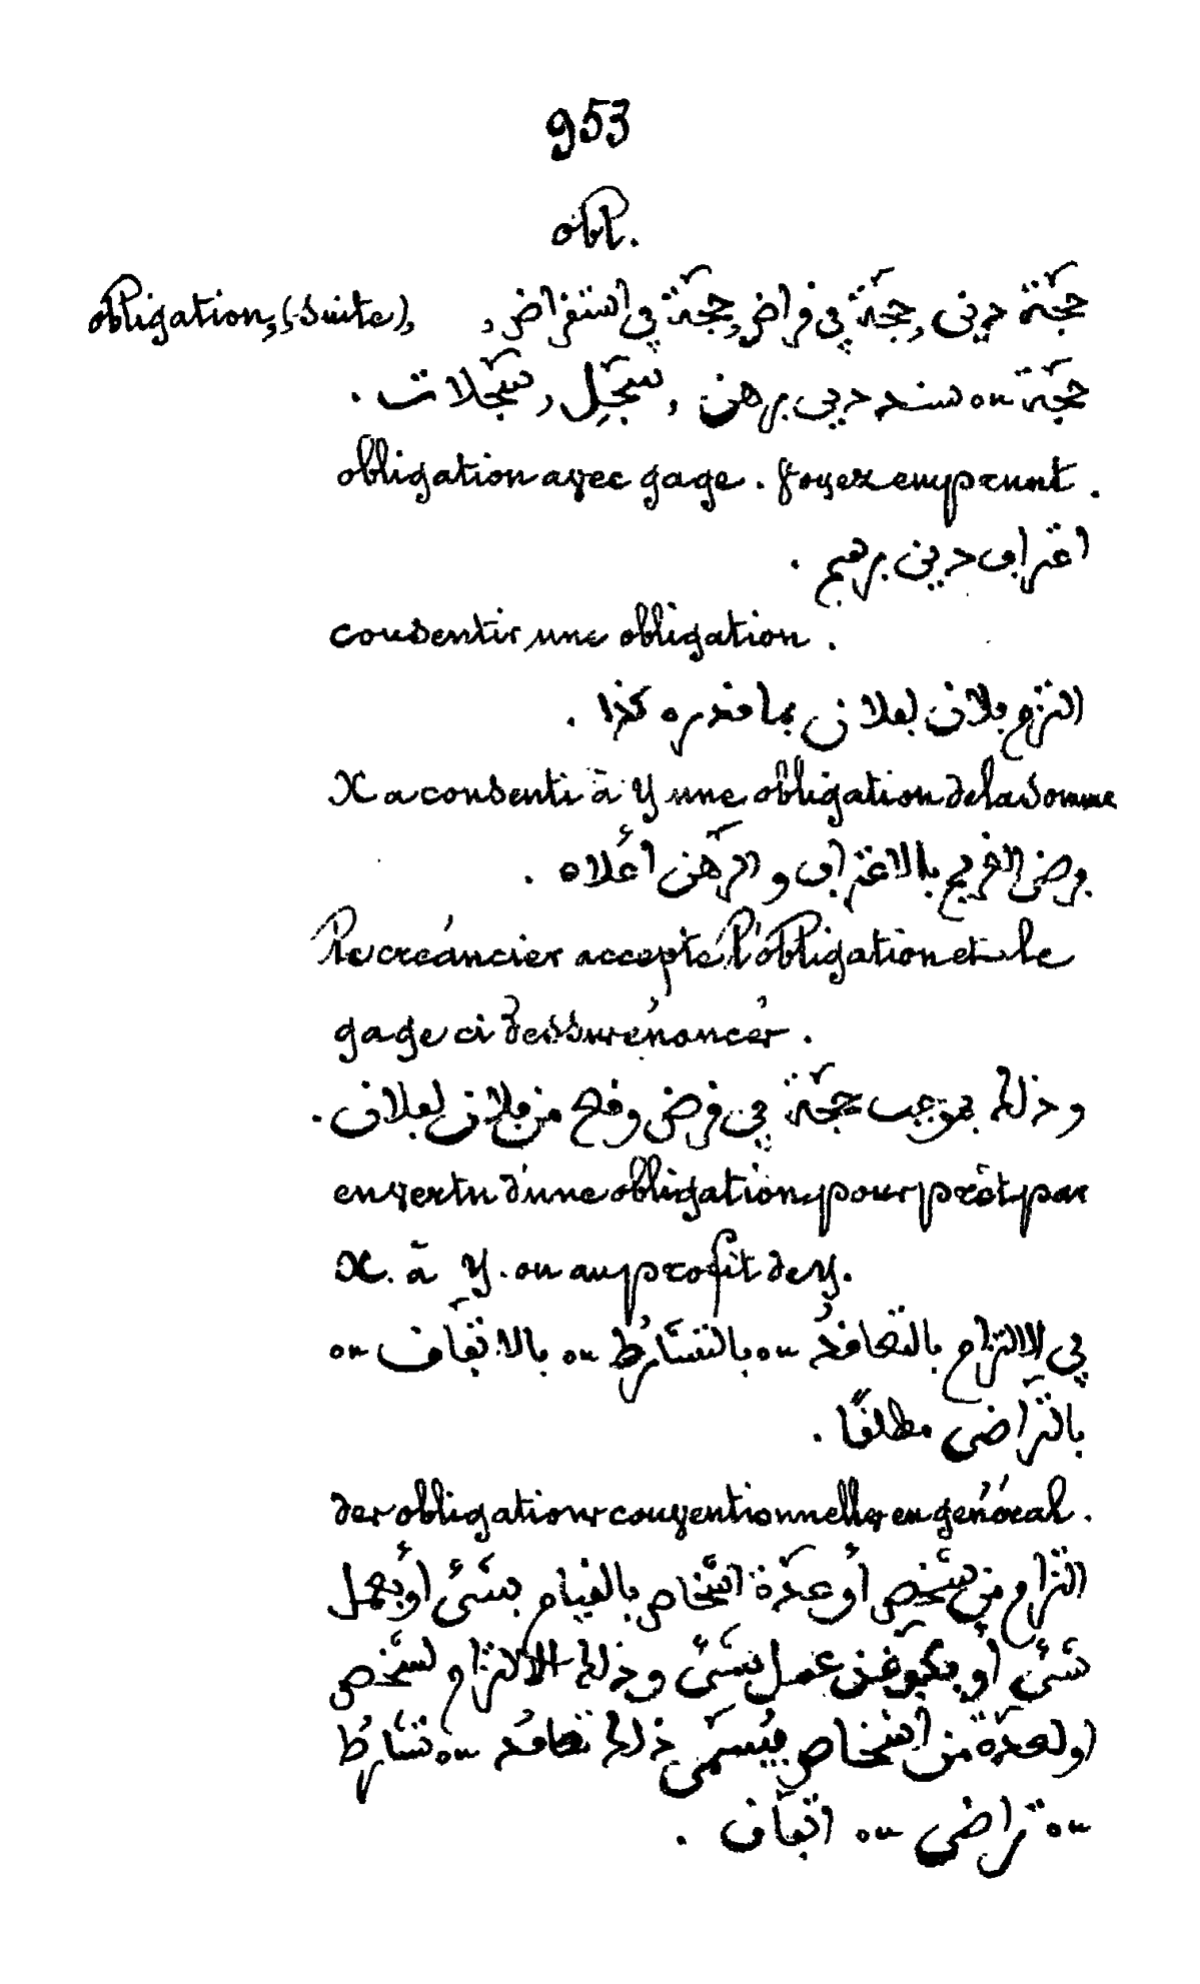 953
obl.
obligation, (suite), حجّة دين, حجّة في قراض, حجّة في استقراض,
حجّة ou سند دين برهن, سجّل, سجّلات.
obligation avec gage. Voyez emprunt.
اعتراف دين برهم.
consentir une obligation.
التزم فلان لفلان بما قدره كذا.
X a consenti à Y une obligation de la somme
ورضى الغريم بالاعتراف والرّهن أعلاه.
Le créancier accepte l'obligation et le
gage ci dessus énoncés.
وذلك بموجب حجّة في قرض وقع من فلان لفلان.
en vertu d'une obligation, pour prêt par
X. à Y. ou au profit de Y.
في الالتزام بالتعاقد ou بالتشارط ou بالاتفاق ou
بالتراضى مطلقًا.
des obligations conventionnelles en général.
التزام من شخص أو عدّة اشخاص بالقيام بشىء أو بعمل
شىء أو بكون عن عمل شىء وذلك الالتزام لشخص
او لعدّة من اشخاص فيسمّى ذلك تعاقد ou تشارط
ou تراضى ou اتفاق.